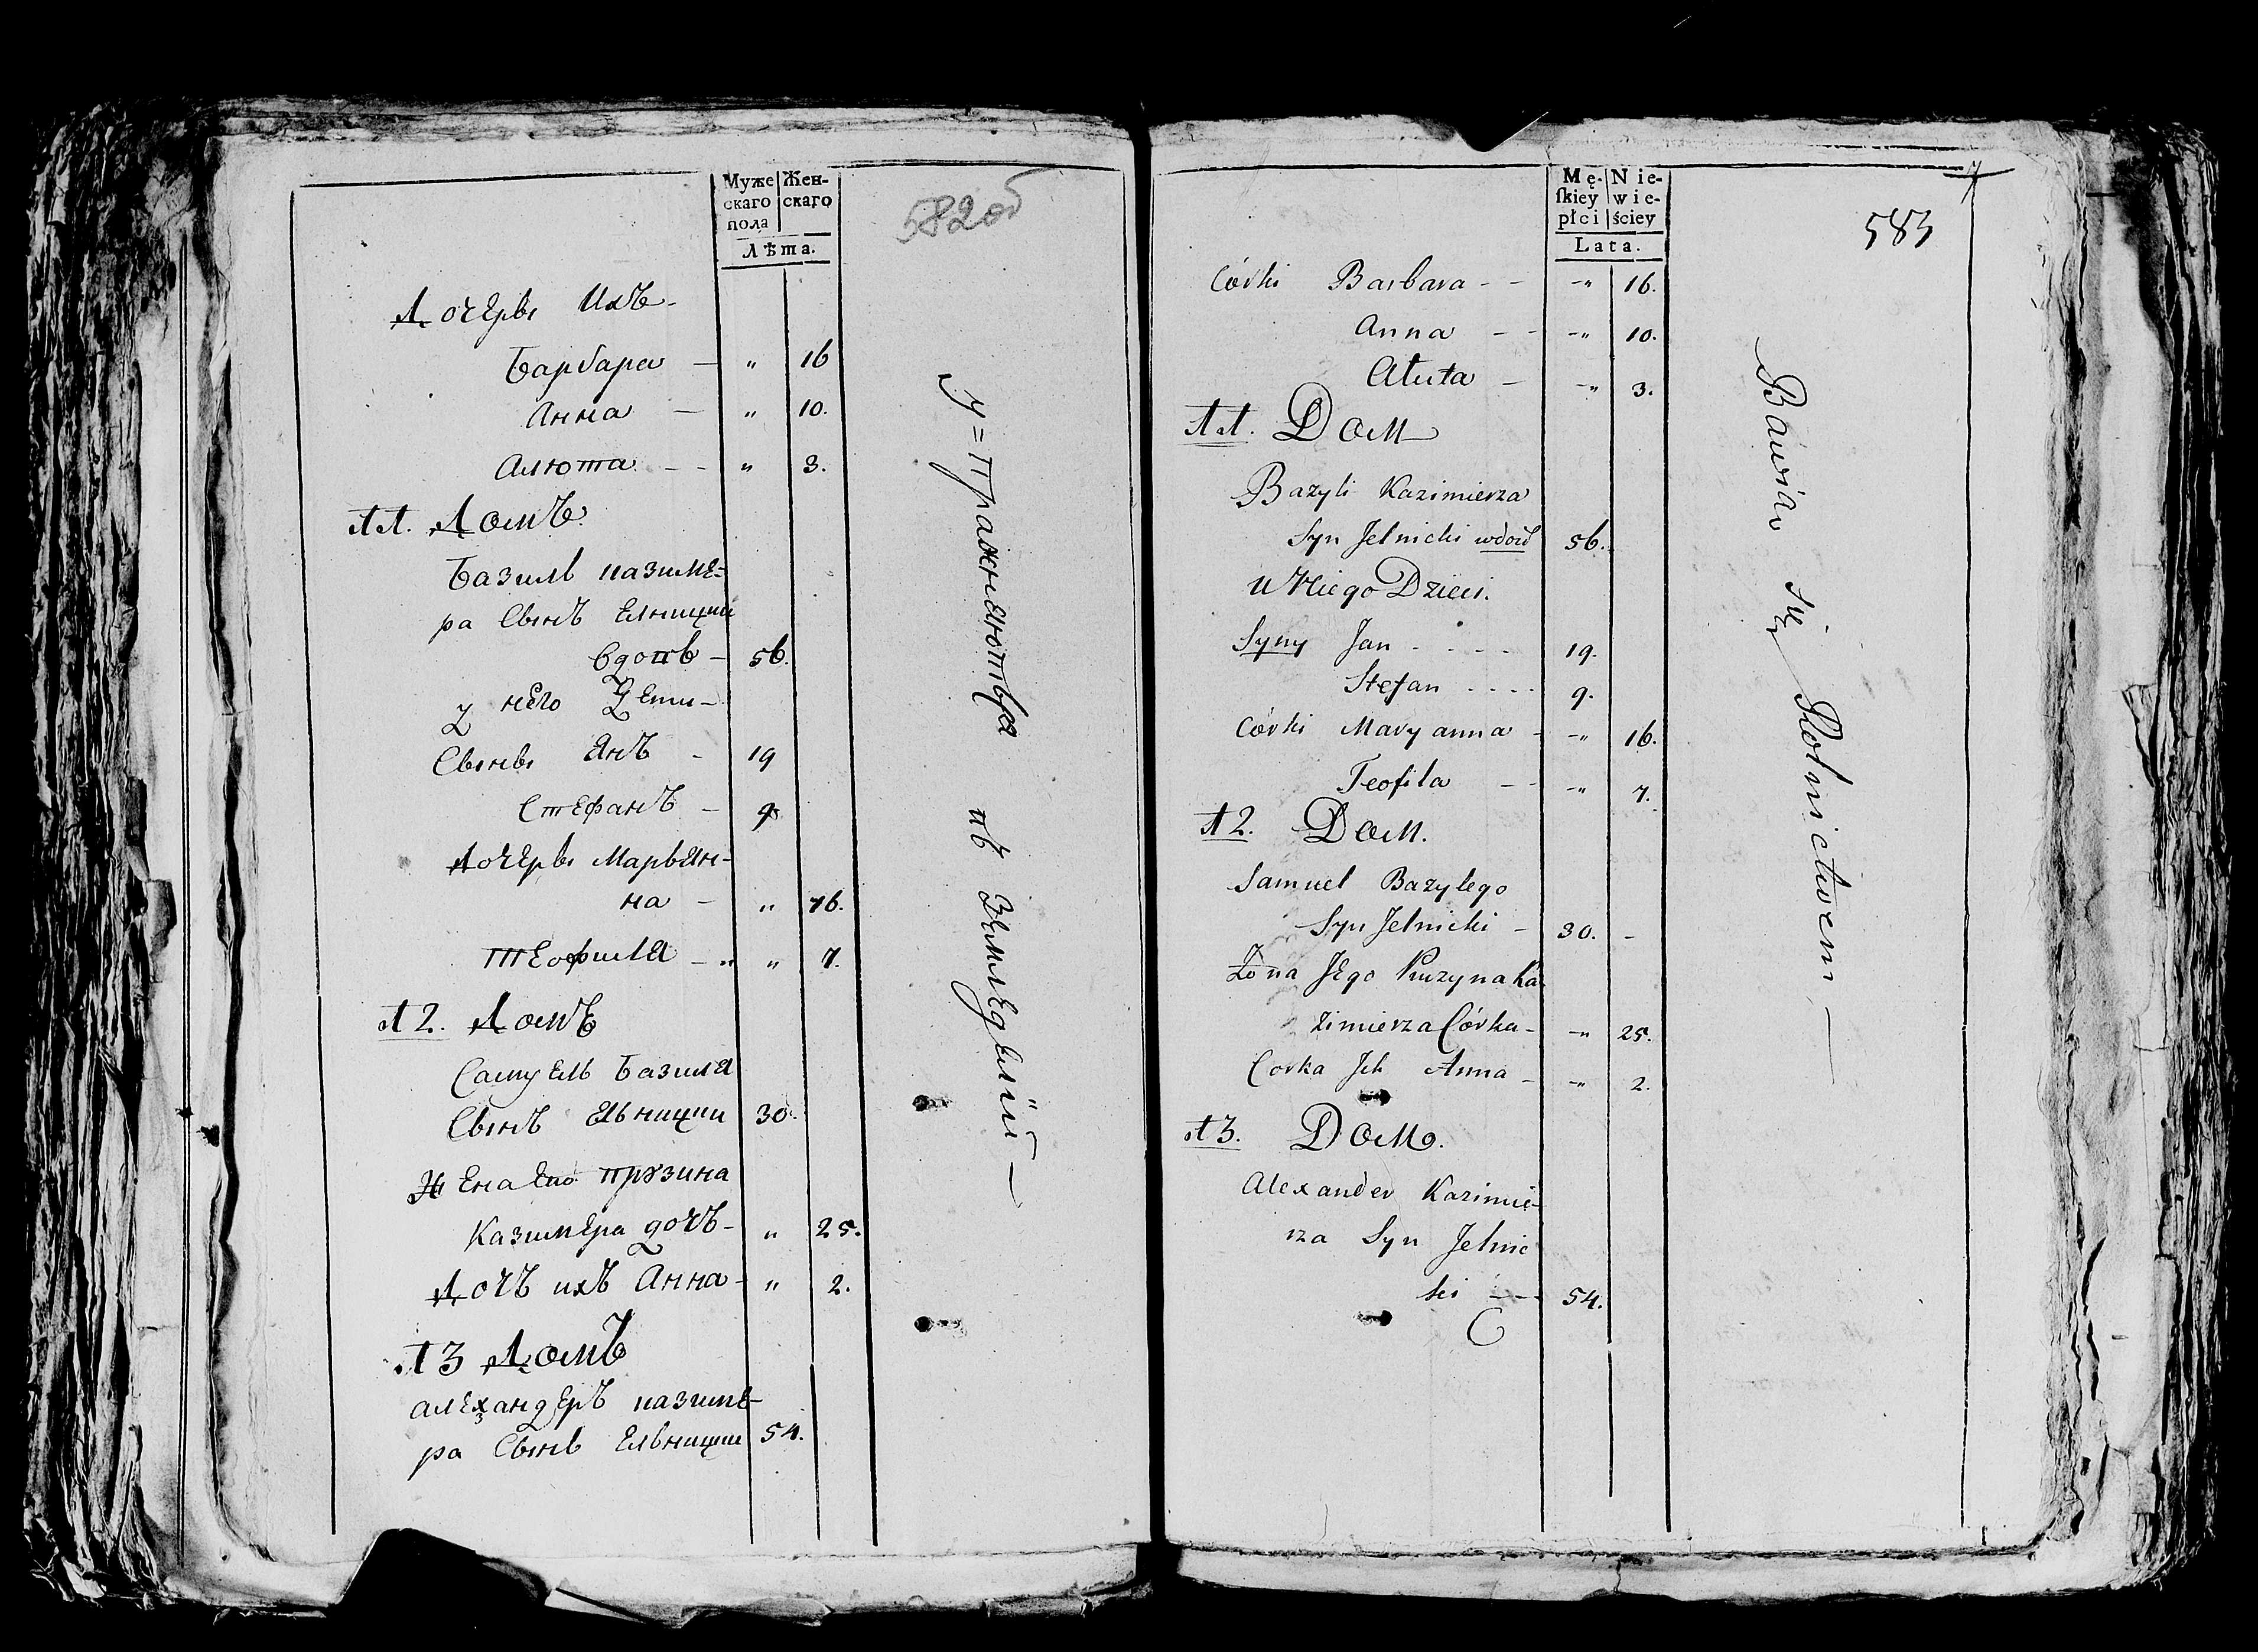 Муже Жен-
скаго скаго
пола
Лѣта.
582об
Дочеры Ихъ -
Барбара — " 16
Анна — " 10.
Алюта - - " 3.
11. Домъ.
Базиль казиме=
ра Сынъ Елницки
Вдовъ — 56.
у него Дети -
Сыны Янъ - 19
Стефанъ - 9
Дочеры Марьян-
на - " 16.
Теофиля - " " 7.
12. Домъ
Самуель Базиля
Сынъ Ельницки 30.
Жена Его Прузина
Казимера дочъ - " 25.
Дочъ ихъ Анна - " 2.
13 Домъ
алехандеръ казиме-
ра Сынъ Ельницки 54.
У=пражняютъся въ земледелии —
Mę- Nie-
ſkiey wie-
płci ściey
Lata.
583
Córki Barbara - - -" 16.
Anna - - -" 10.
Aluta - -" 3.
11. Dom
Bazyli Kazimierza
Syn Jelnicki wdow 56.
U Niego Dzieci.
Syny Jan - - - - 19.
Stefan - - - - 9.
Córki Maryanna - -" 16.
Teofila - - -" 7.
12. Dom.
Samuel Bazylego
Syn Jelnicki - 30. -
Żona Jego Pruzyna Ka
zimierza Córka - -" 25.
Corka Jch Anna - -" 2.
13. Dom.
Alexander Kazimie-
rza Syn Jelnic
ki — 54.
Bawią się Rolnictwem —